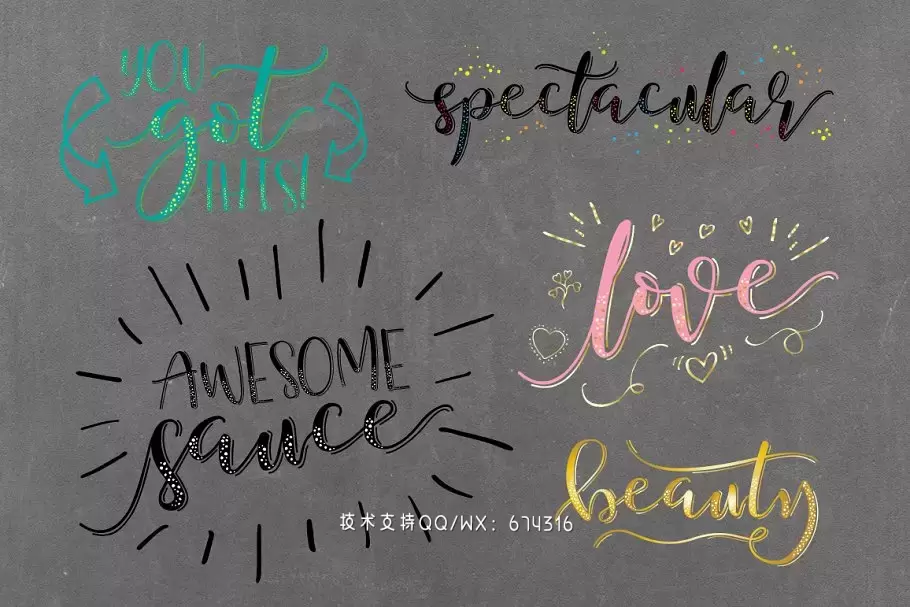 YOU
got
THIS!
spectacular
love
AWESOME
sauce
beauty
技术支持QQ/WX：674316